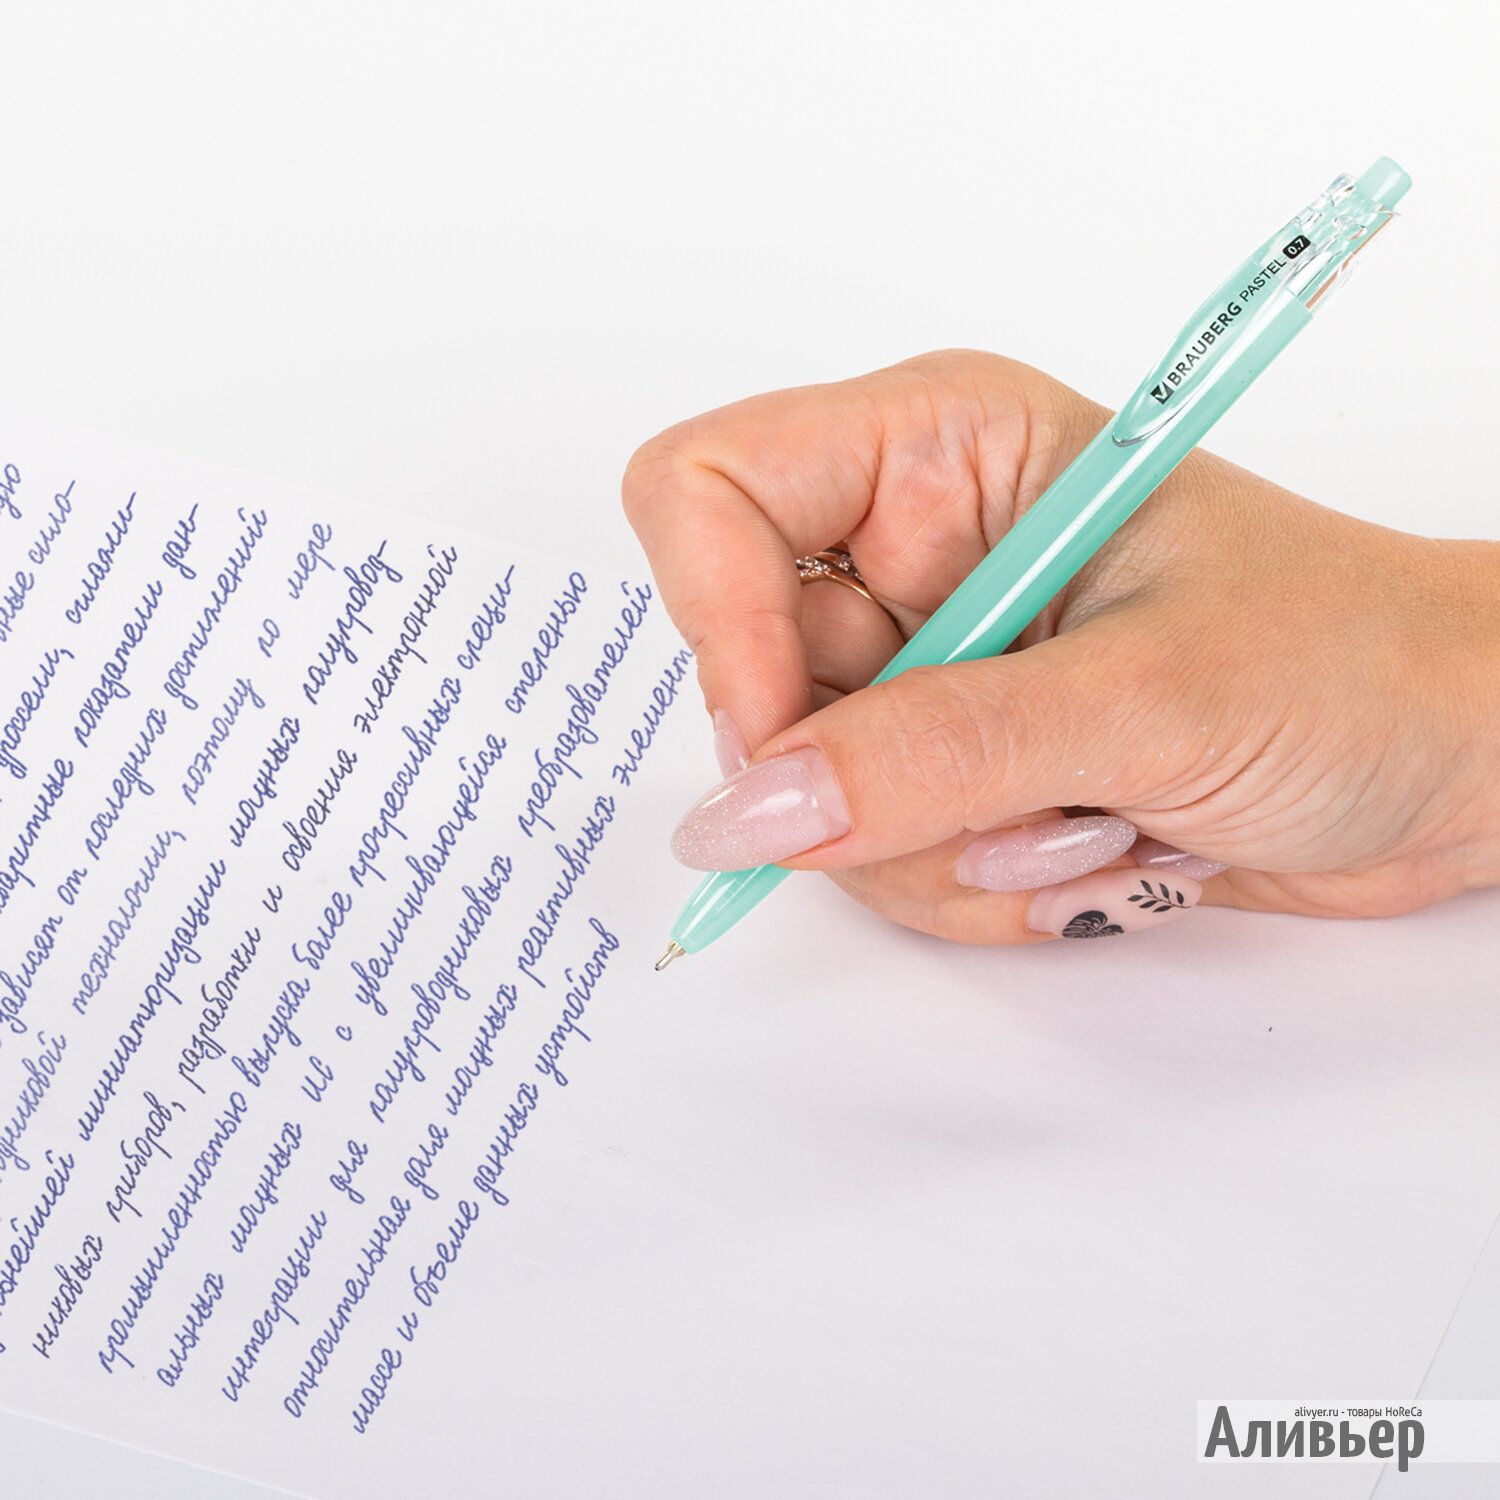 ную
ные сило-
дроссели, силами
габаритные показатели дан-
зависят от последних достижений
водниковой технологии, поэтому по мере
дальнейшей миниатюризации мощных полупровод-
никовых приборов, разработки и освоения электронной
промышленностью выпуска более прогрессивных специ-
альных мощных ИС с увеличивающейся степенью
интеграции для полупроводниковых преобразователей
относительная доля мощных реактивных элемент
массе и объеме данных устройств
BRAUBERG PASTEL 0.7
alivyer.ru - товары HoReCa
Аливьер